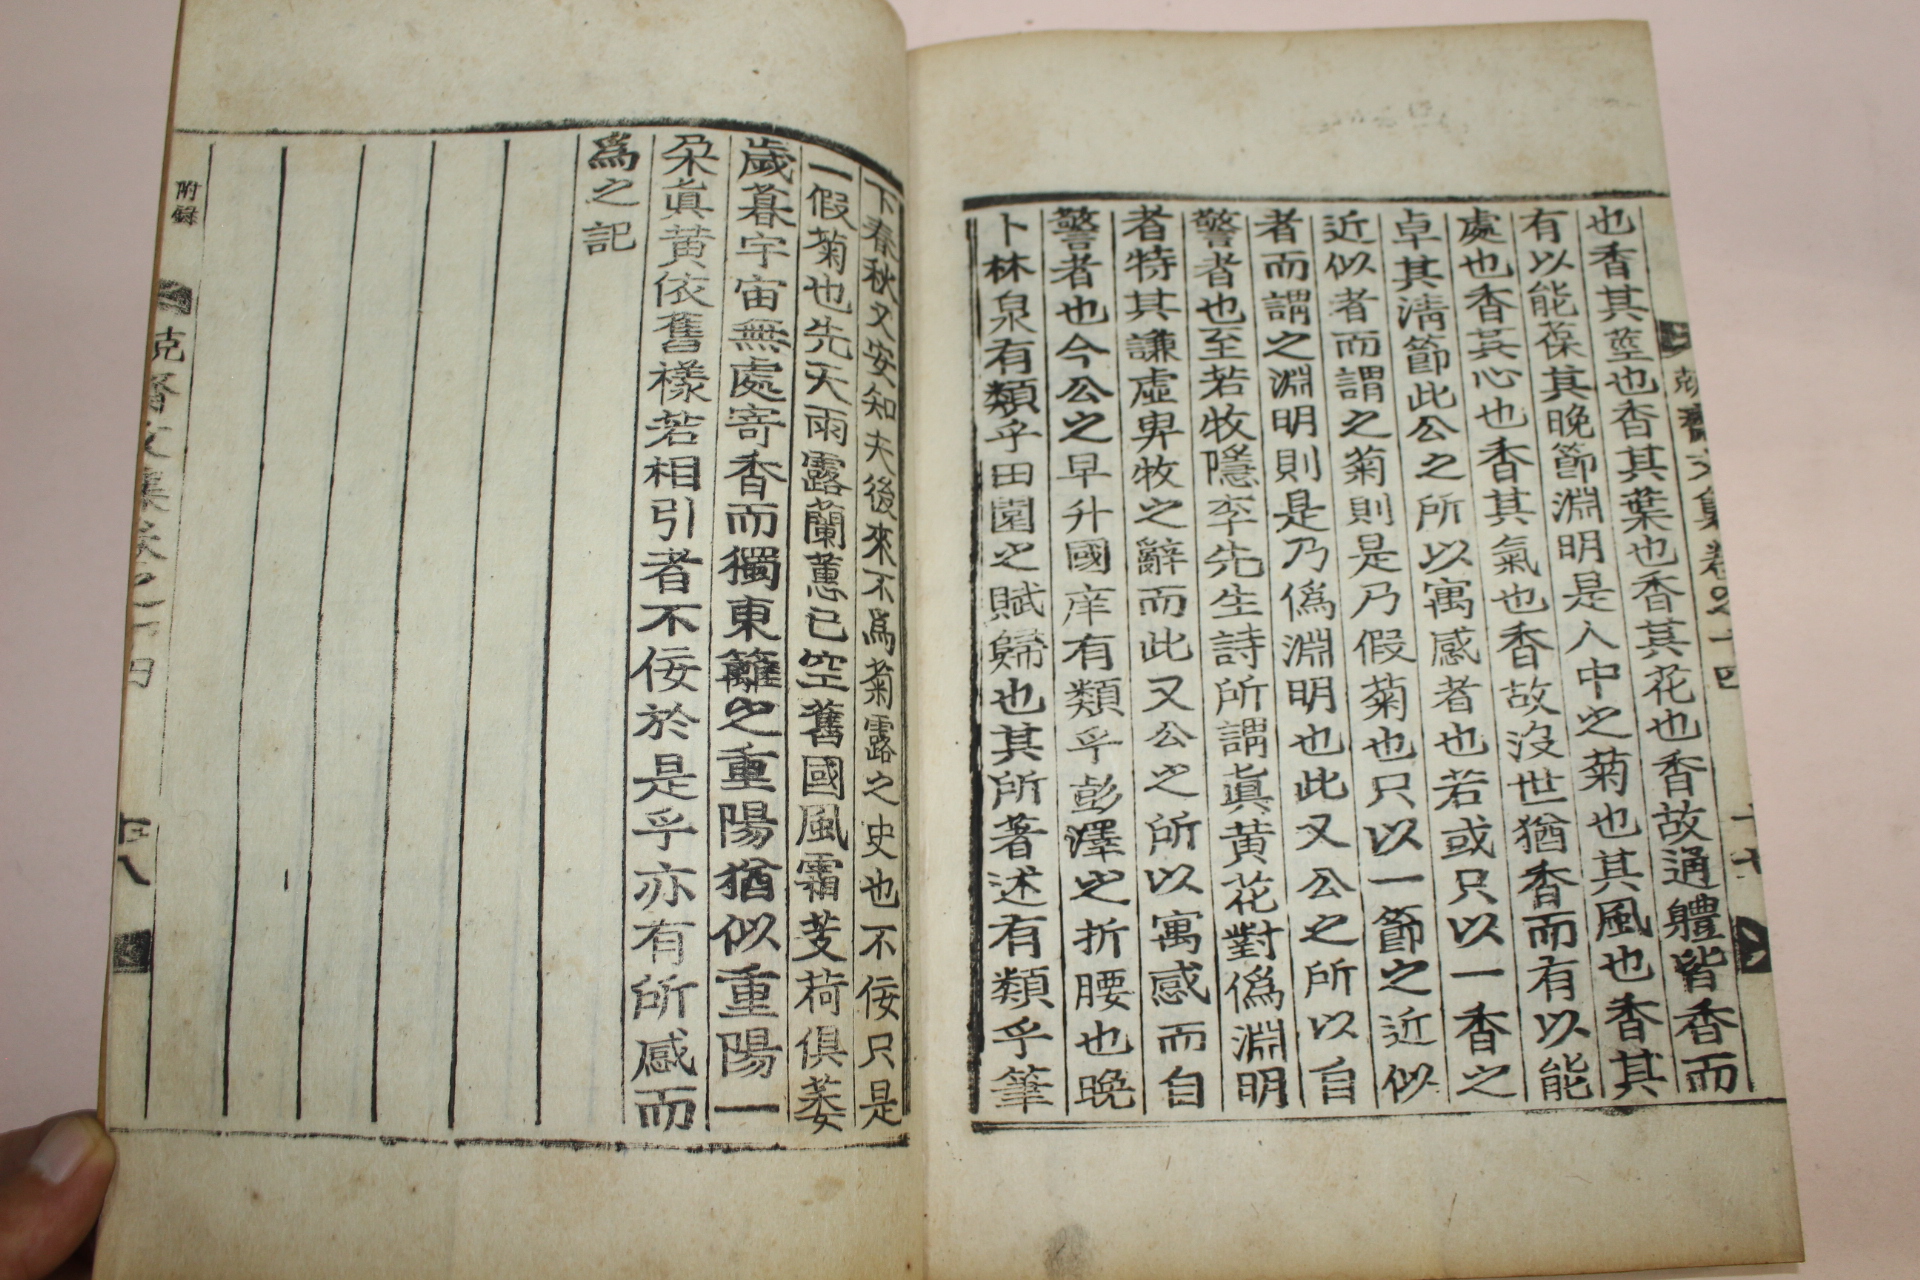 也香其莖也香其葉也香其花也香故通體皆香而
有以能葆其晩節淵明是人中之菊也其風也香其
處也香其心也香其氣也香故沒世猶香而有以能
卓其淸節此公之所以寓感者也若或只以一香之
近似者而謂之菊則是乃假菊也只以一節之近似
者而謂之淵明則是乃僞淵明也此又公之所以自
警者也至若牧隱李先生詩所謂眞黃花對僞淵明
者特其謙虛卑牧之辭而此又公之所以寓感而自
警者也今公之早升國庠有類乎彭澤之折腰也晩
卜林泉有類乎田園之賦歸也其所著述有類乎筆
下春秋又安知夫後來不爲菊露之史也不佞只是
一假菊也先天雨露蘭蕙已空舊國風霜芰荷俱萎
歲暮宇宙無處寄香而獨東籬之重陽猶似重陽一
朶眞黃依舊樣若相引者不佞於是乎亦有所感而
爲之記
附錄
克齋文集卷之十四
十八